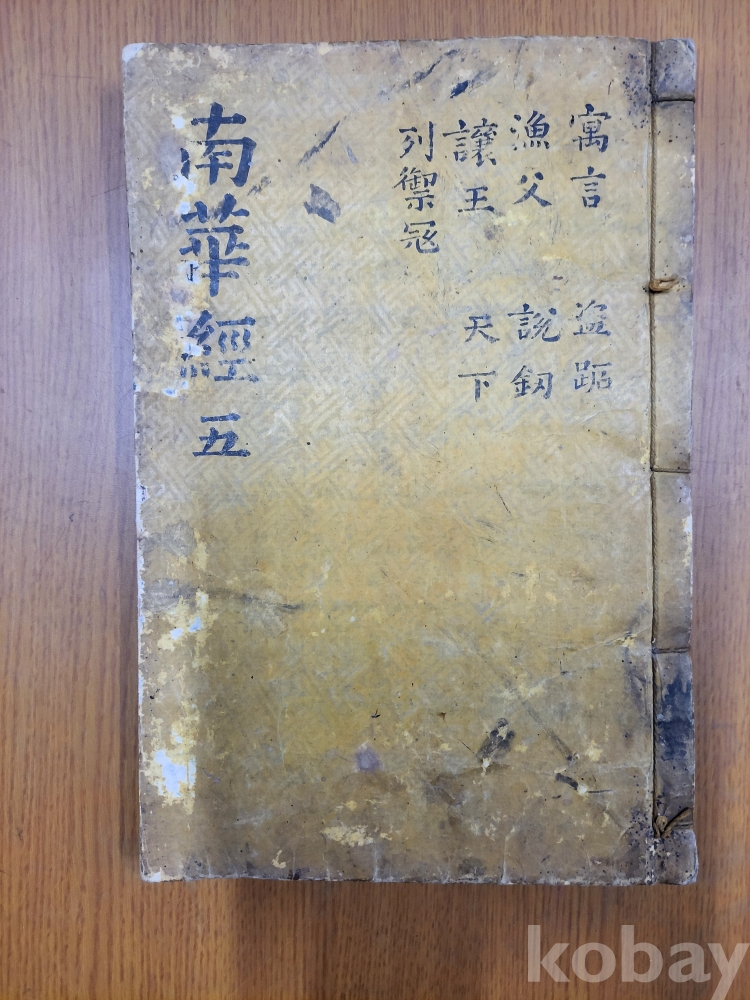 寓言 盜跖
漁父 說釰
讓王 天下
列禦冠
南華經 五
kobay